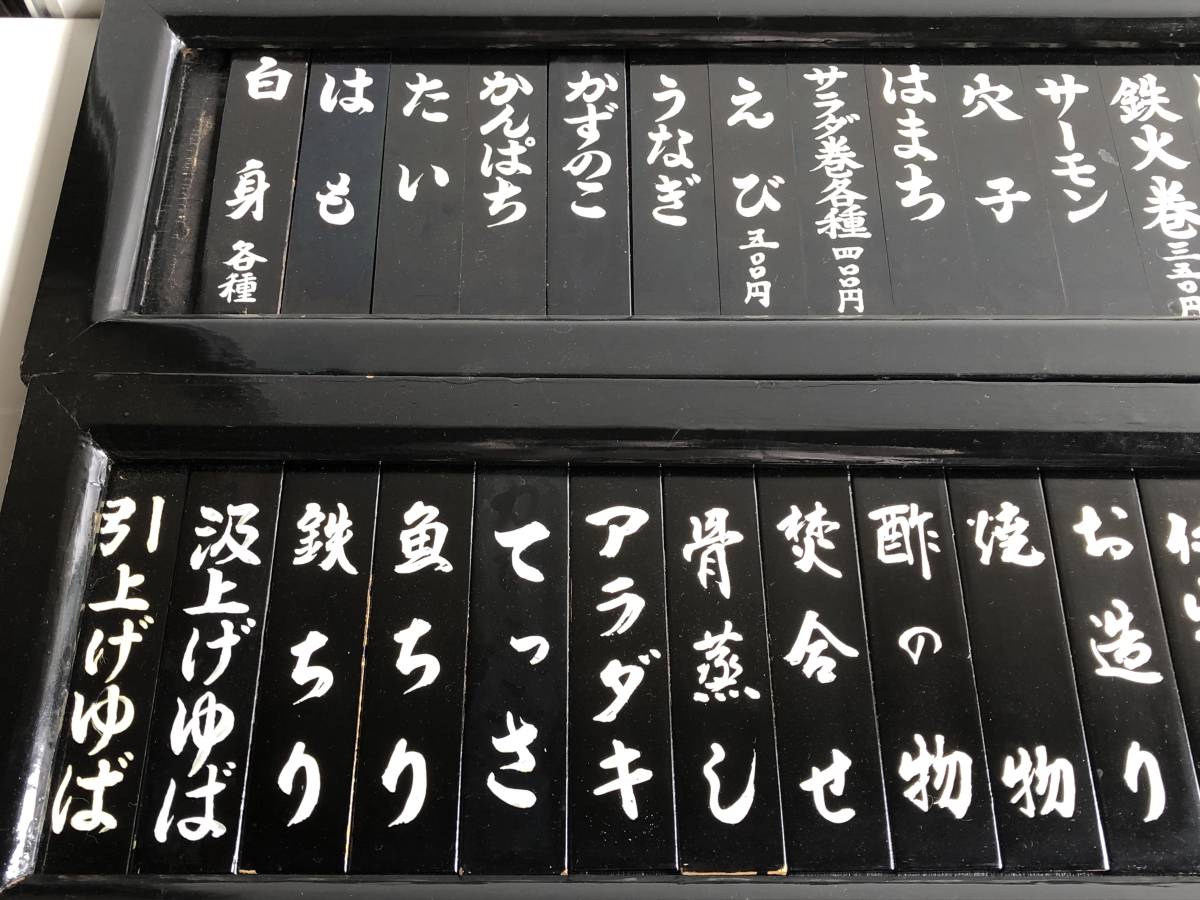 鉄火巻 三五〇円
サーモン
穴子
はまち
サラダ巻各種 四〇〇円
えび 五〇〇円
うなぎ
かずのこ
かんぱち
たい
はも
白身 各種
お造り
焼物
酢の物
焚合せ
骨蒸し
アラダキ
てっさ
魚ちり
鉄ちり
汲上げゆば
引上げゆば